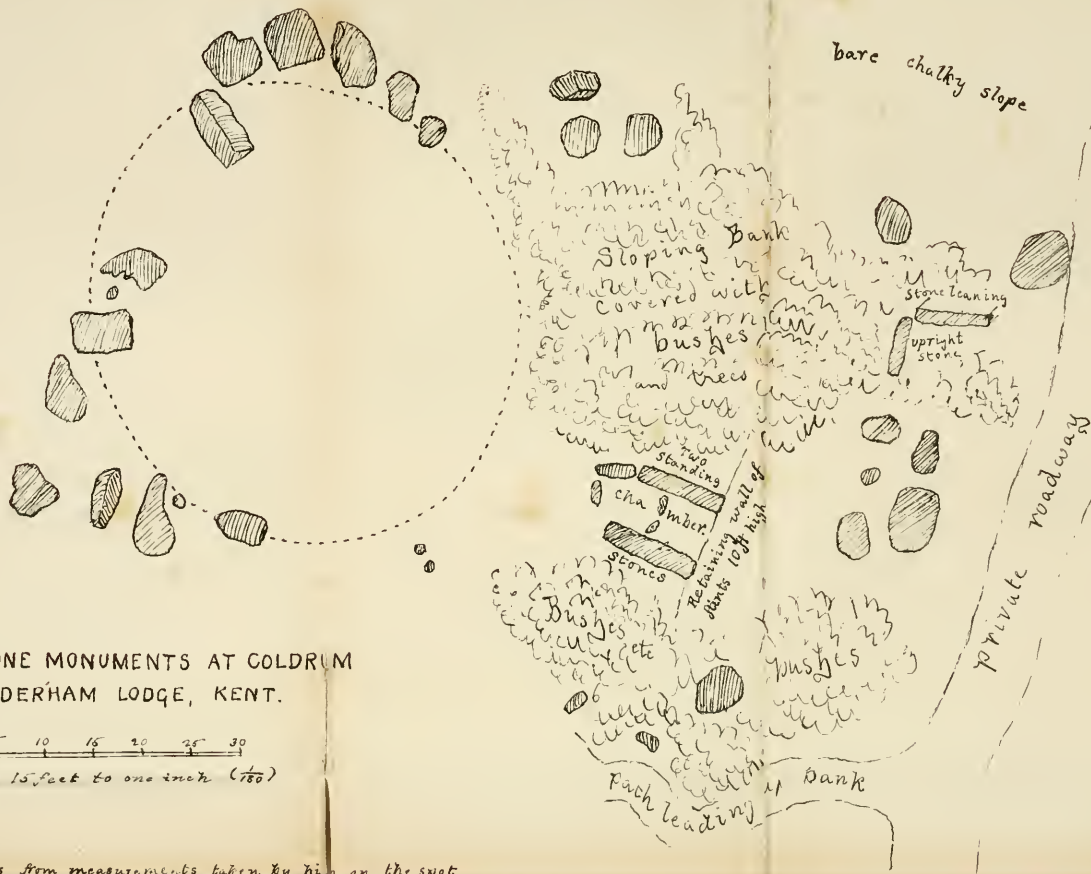 bare chalky slope
Sloping Bank
covered with
bushes
and trees
stone leaning
upright
stone
Two
standing
chamber
stones
Retaining wall of
flints 10 ft high
private roadway
Bushes
etc
bushes
Path leading up bank
ONE MONUMENTS AT COLDRUM
DERHAM LODGE, KENT.
10 15 20 25 30
15 feet to one inch (1/180)
from measurements taken by him on the spot